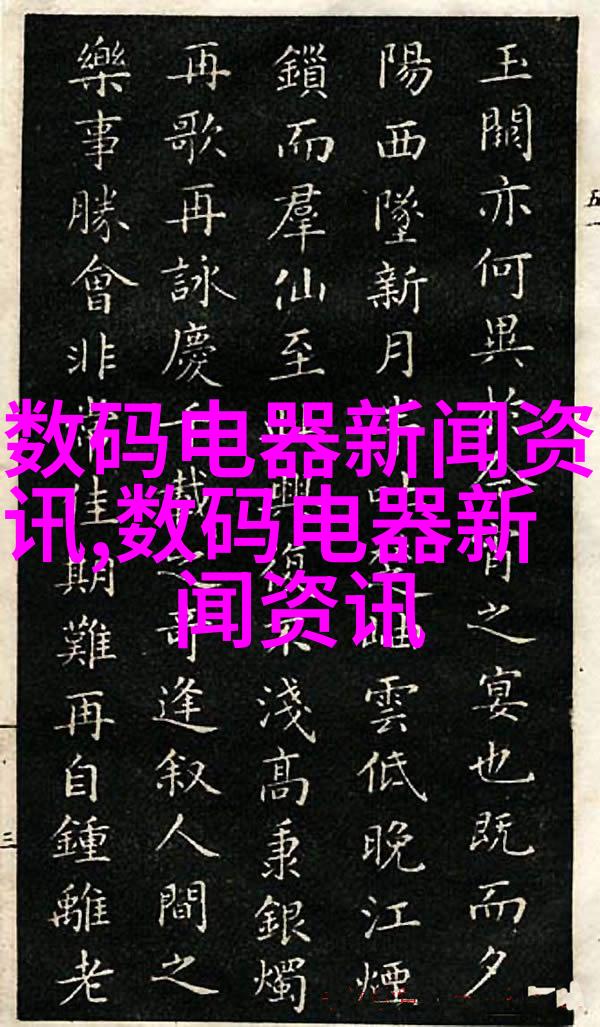 玉闕亦何異於今宵之宴也既而夕
陽西墜新月吐岫雲低晚江煙
鎖而羣仙至興復不淺高秉銀燭
再歌再詠慶千載之奇逢叙人間之
樂事勝會非常佳期難再自鍾離老
数码电器新闻资
讯,数码电器新
闻资讯